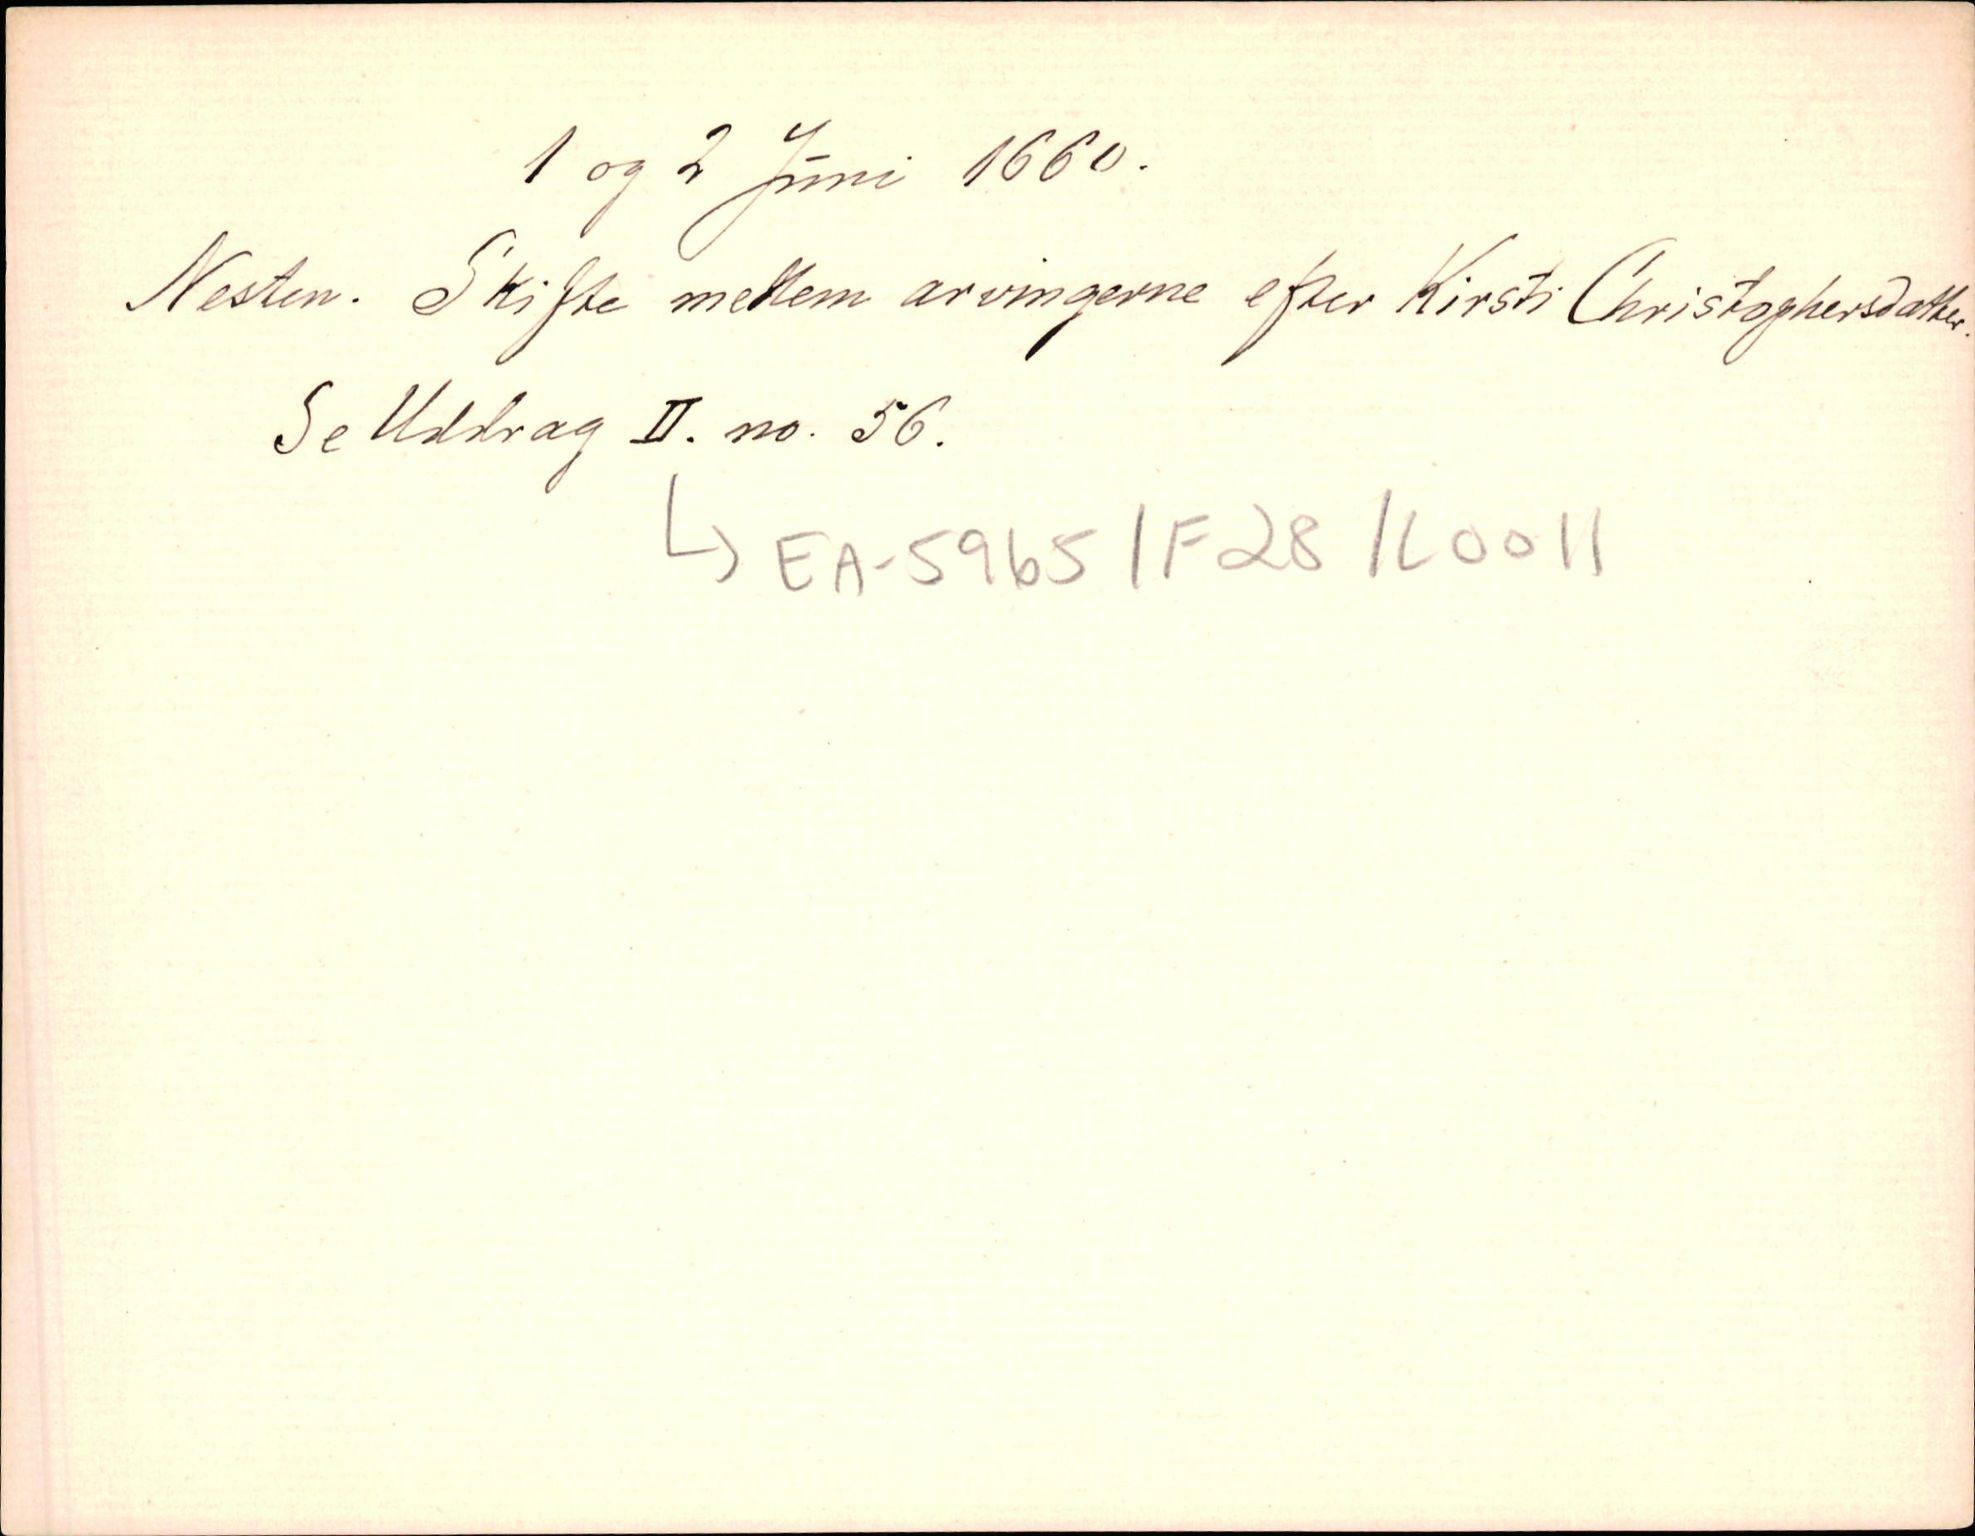 1 og 2 Juni 1660.
Nesten. Skifte mellem arvingerne efter Kirsti Christophersdatter.
Se Uddrag II. no. 56.
↳ EA-5965/F28/L0011